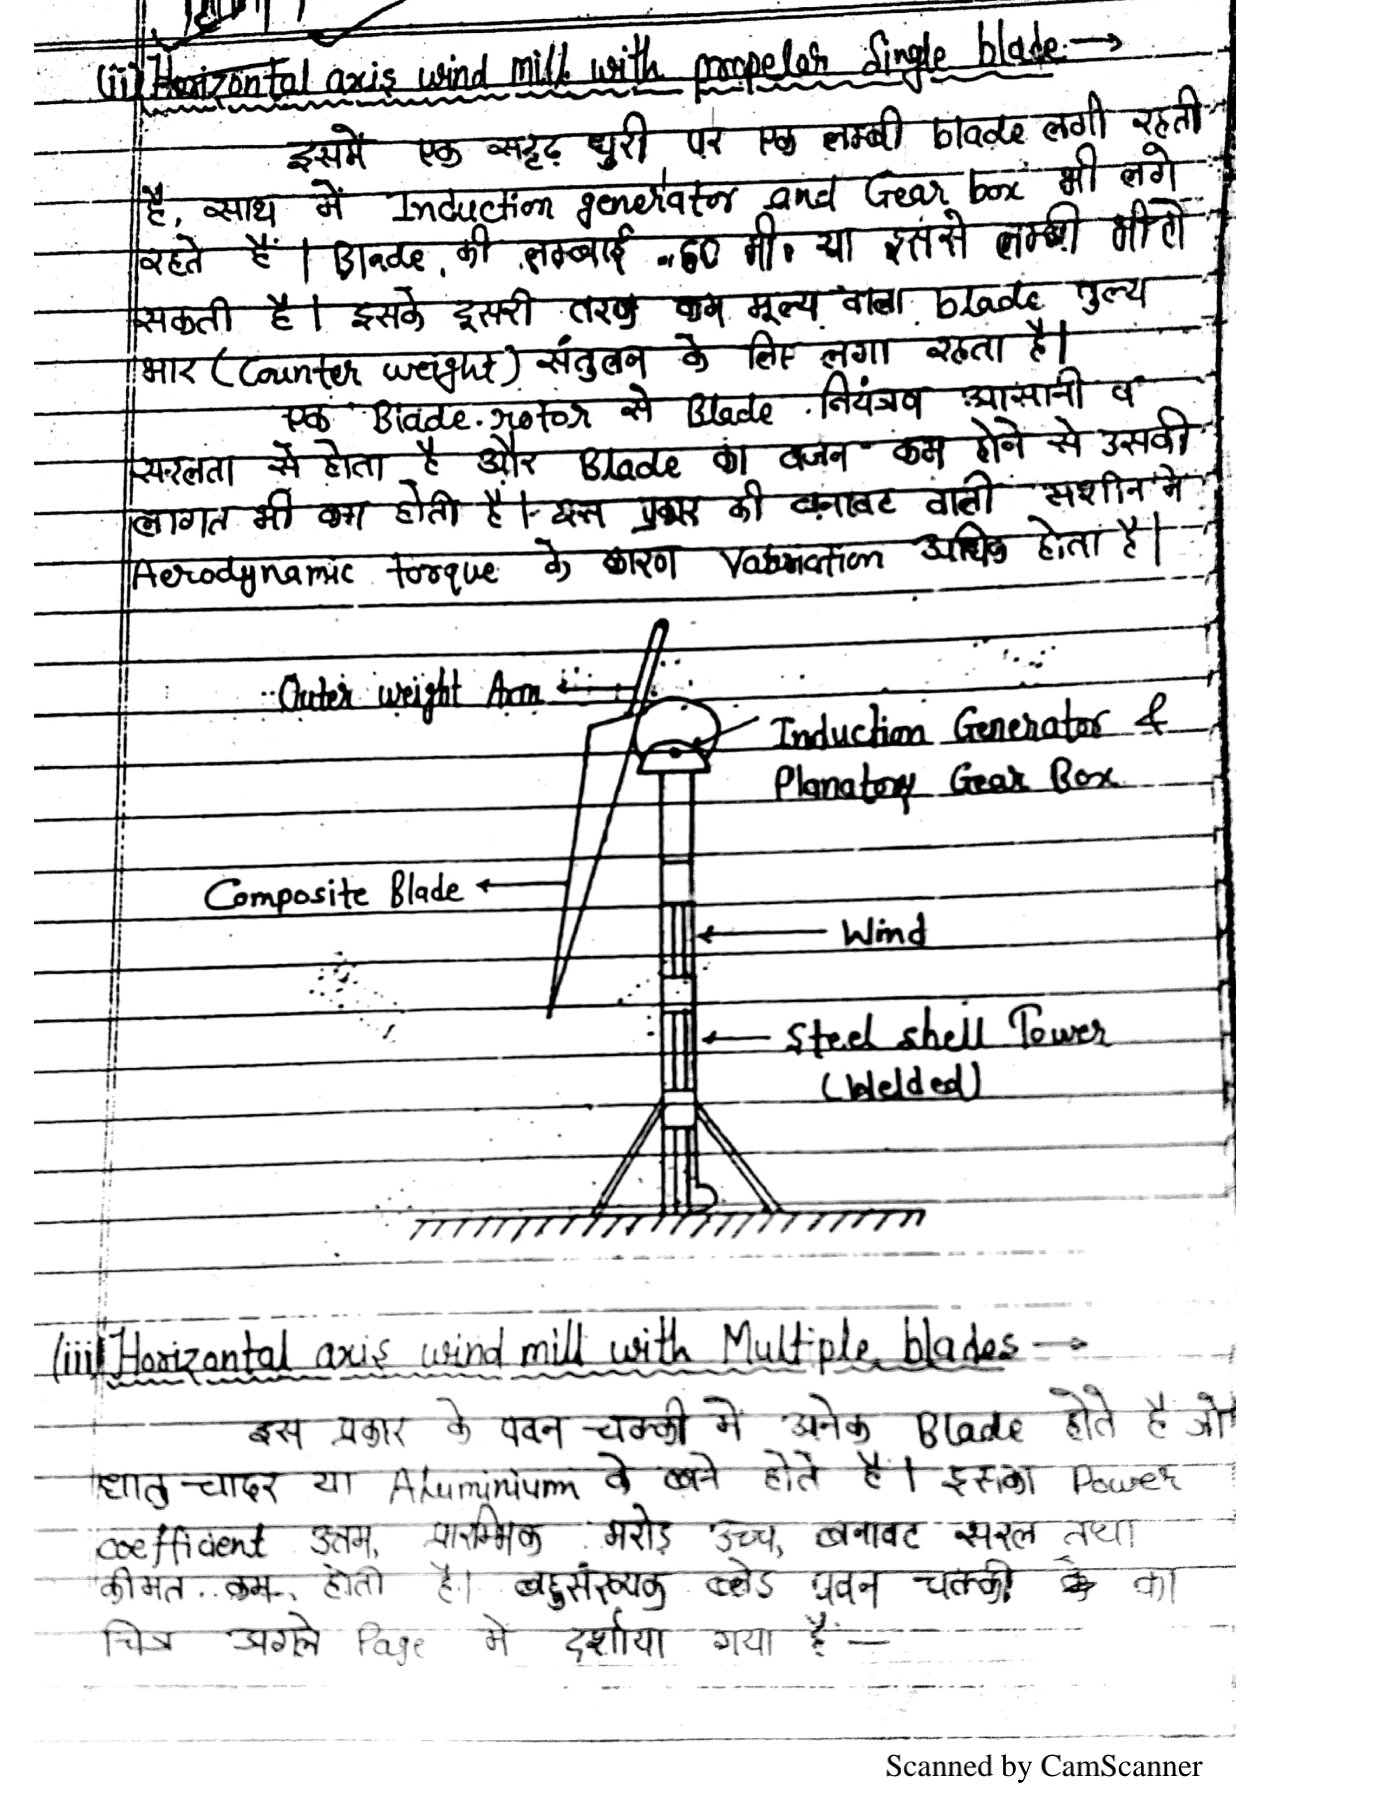 (ii) Horizontal axis wind mill with propelar Single blade →
इसमें एक सदृढ़ धुरी पर एक लम्बी blade लगी रहती
है, साथ में Induction generator and Gear box भी लगे
रहते हैं। Blade की लम्बाई 60 मी. या इससे लम्बी भी हो
सकती है। इसके दूसरी तरफ कम मूल्य वाला blade तुल्य
भार (Counter weight) संतुलन के लिए लगा रहता है।
एक Blade rotor से Blade नियंत्रण आसानी व
सरलता से होता है और Blade का वजन कम होने से उसकी
लागत भी कम होती है। इस प्रकार की बनावट वाली मशीन में
Aerodynamic torque के कारण Vabriation अधिक होता है।
Outer weight Arm
Induction Generator &
Planatory Gear Box
Composite Blade
Wind
Steel shell Tower
(Welded)
(iii) Horizontal axis wind mill with Multiple blades →
इस प्रकार के पवन चक्की में अनेक Blade होते है जो
धातु चादर या Aluminium के बने होते है। इसका Power
coefficient उत्तम, प्रारम्भिक मरोड़ उच्च, बनावट सरल तथा
कीमत कम होती है। बहुसंख्यक ब्लेड पवन चक्की का
चित्र अगले Page में दर्शाया गया है —
Scanned by CamScanner